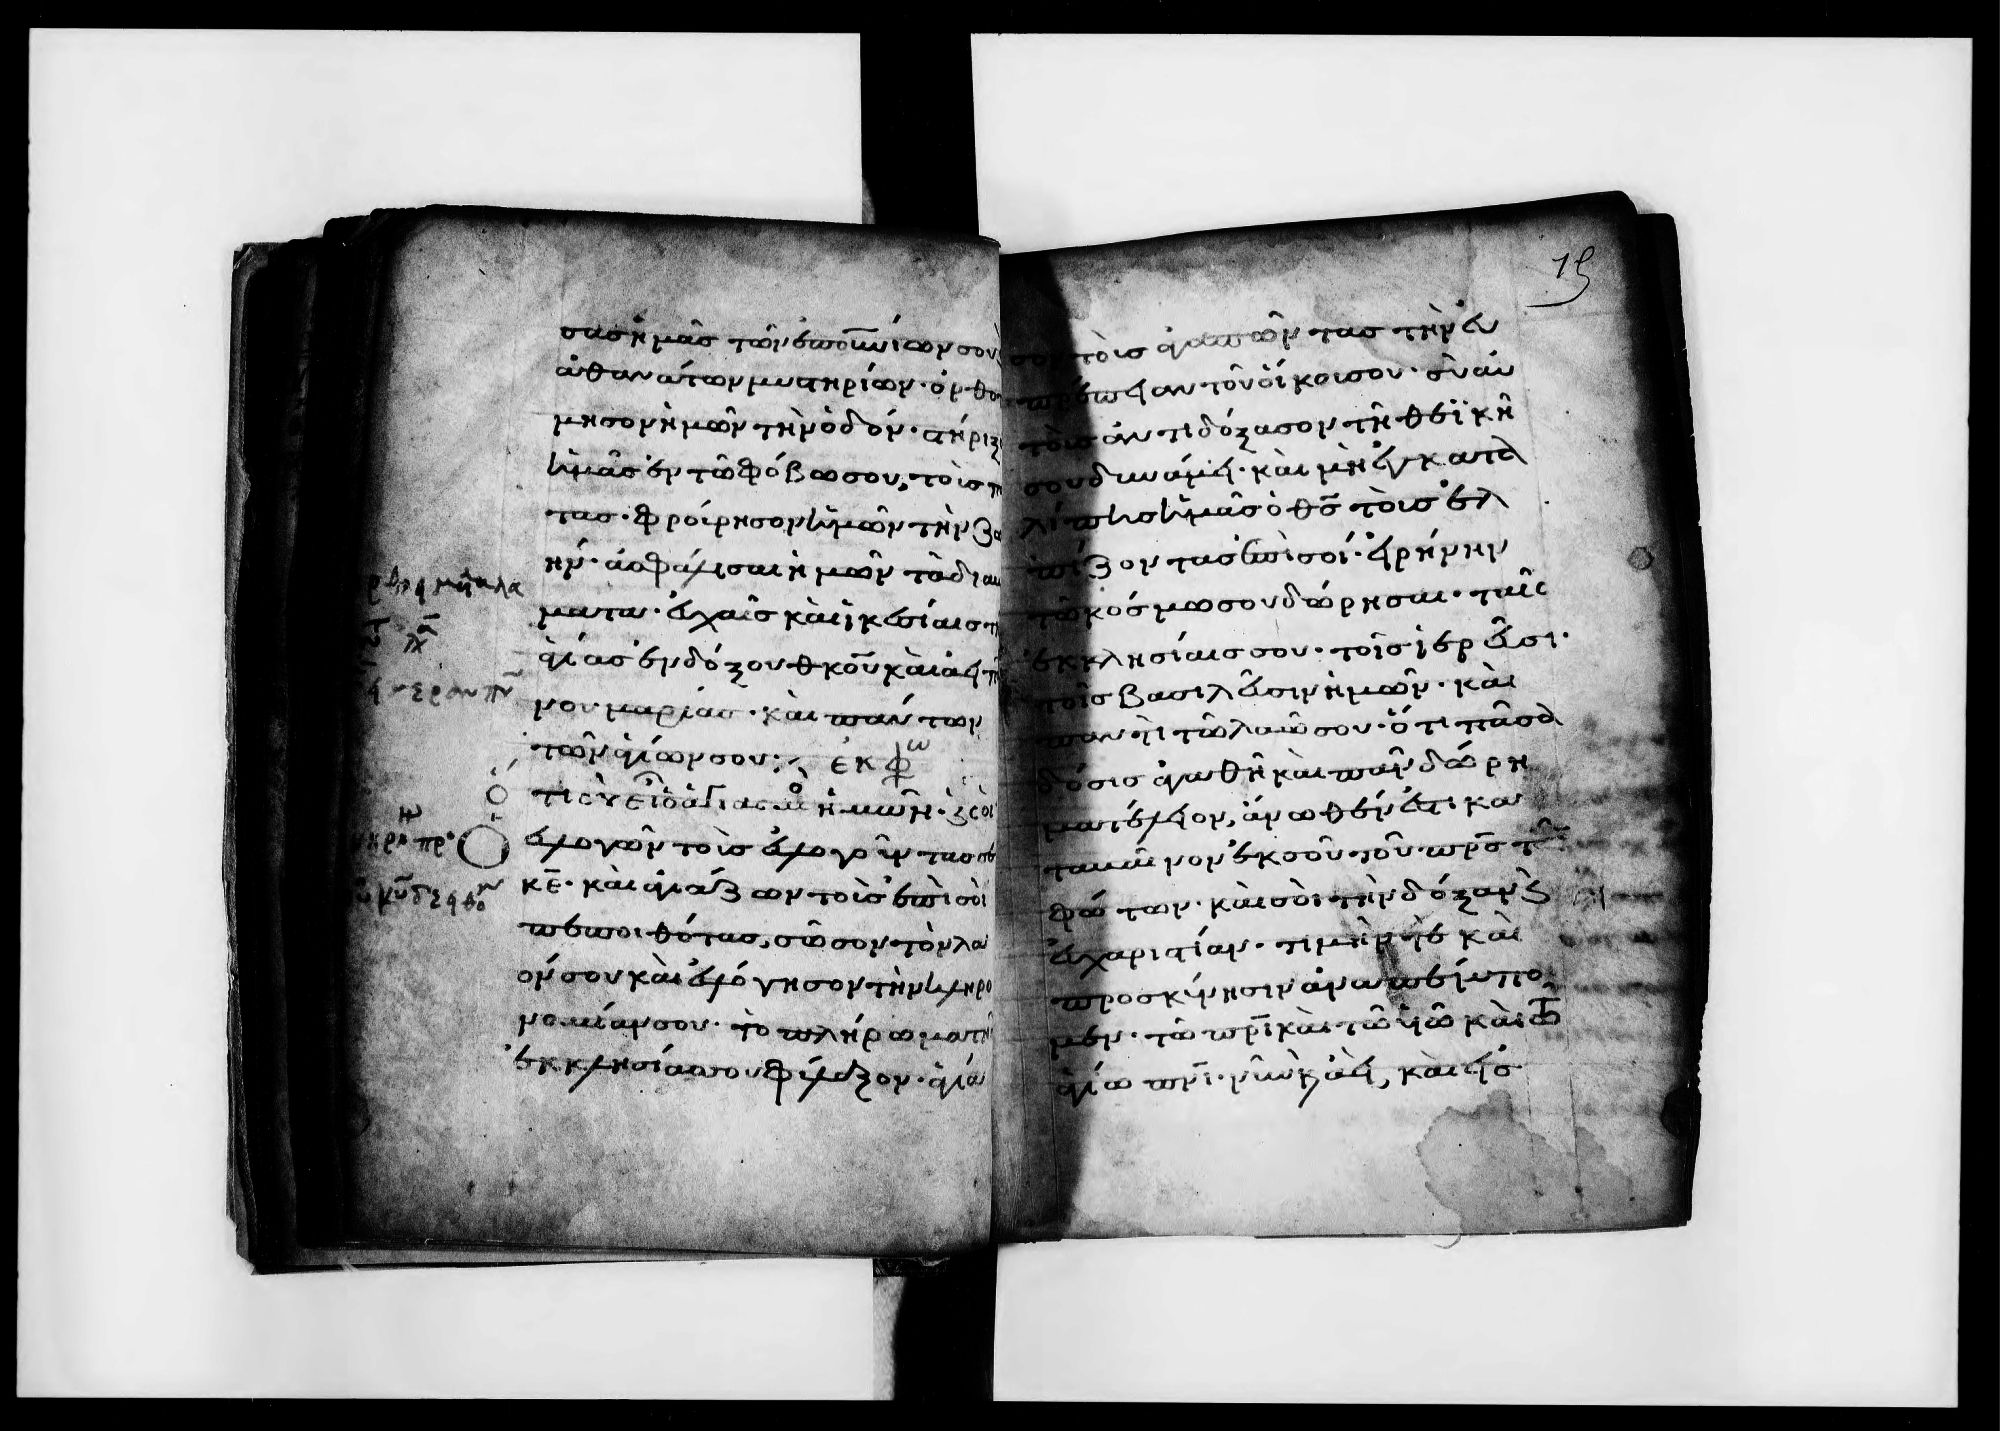 σας ἡμᾶς τῶν ἐποὐνίων σου
ἀθανάτων μυστηρίων· ὀρθο
μησον ἡμῶν τὴν ὁδόν· στήριξ
ἡμᾶς ἐν τῶ φόβω σου, τοὺς π
τας· φρούρησον ἡμῶν τὴν ζω
ήν· ἀσφάλισαι ἡμῶν τὰ διαβ
ματα· εὐχαῖς καὶ ἱκεσίαις τ
ἁγίας ἐνδόξου θκου καὶ ἀειπ
νου μαρίας· καὶ πάντων
τῶν ἁγίων σου: ἐκφω
Ὅ
τι σὺ εἶ ὁ ἁγιασμὸς ἡμῶν· καὶ σοὶ
Ὁ
εὐλογῶν τοὺς εὐλογοῦντας σε
κε· καὶ ἁγιάζων τοὺς ἐπὶ σοὶ
πεποιθότας, σῶσον τὸν λα
όν σου καὶ εὐλόγησον τὴν κληρο
νομίαν σου· τὸ πλήρωμα τῆς
ἐκκλησίας σου φύλαξον· ἁγία
15
σον τοὺς ἀγαπῶντας τὴν εὐ
πρέπειαν τοῦ οἴκου σου· σὺ αὐ
τοὺς ἀντιδόξασον τῆ θεϊκῆ
σου δυνάμει· καὶ μὴ ἐγκατα
λίπης ἡμᾶς ὁ θς τοὺς ἐλ
πίζοντας ἐπὶ σοί· εἰρήνην
τῶ κόσμω σου δώρησαι· ταῖς
ἐκκλησίαις σου· τοῖς ἱερεῦσι·
τοῖς βασιλεῦσιν ἡμῶν· καὶ
παντὶ τῶ λαῶ σου· ὅτι πᾶσα
δόσις ἀγαθὴ καὶ πᾶν δώρη
μα τέλειον, ἄνωθέν ἐστι κα
ταβαῖνον ἐκ σοῦ τοῦ πρς τῶν
φώτων· καὶ σοὶ τὴν δόξαν καὶ
εὐχαριστίαν· τιμήν τε καὶ
προσκύνησιν ἀναπέμπο
μεν· τῶ πρὶ καὶ τῶ υἱῶ καὶ τῶ
ἁγίω πνι· νῦν καὶ ἀεὶ, καὶ εἰς